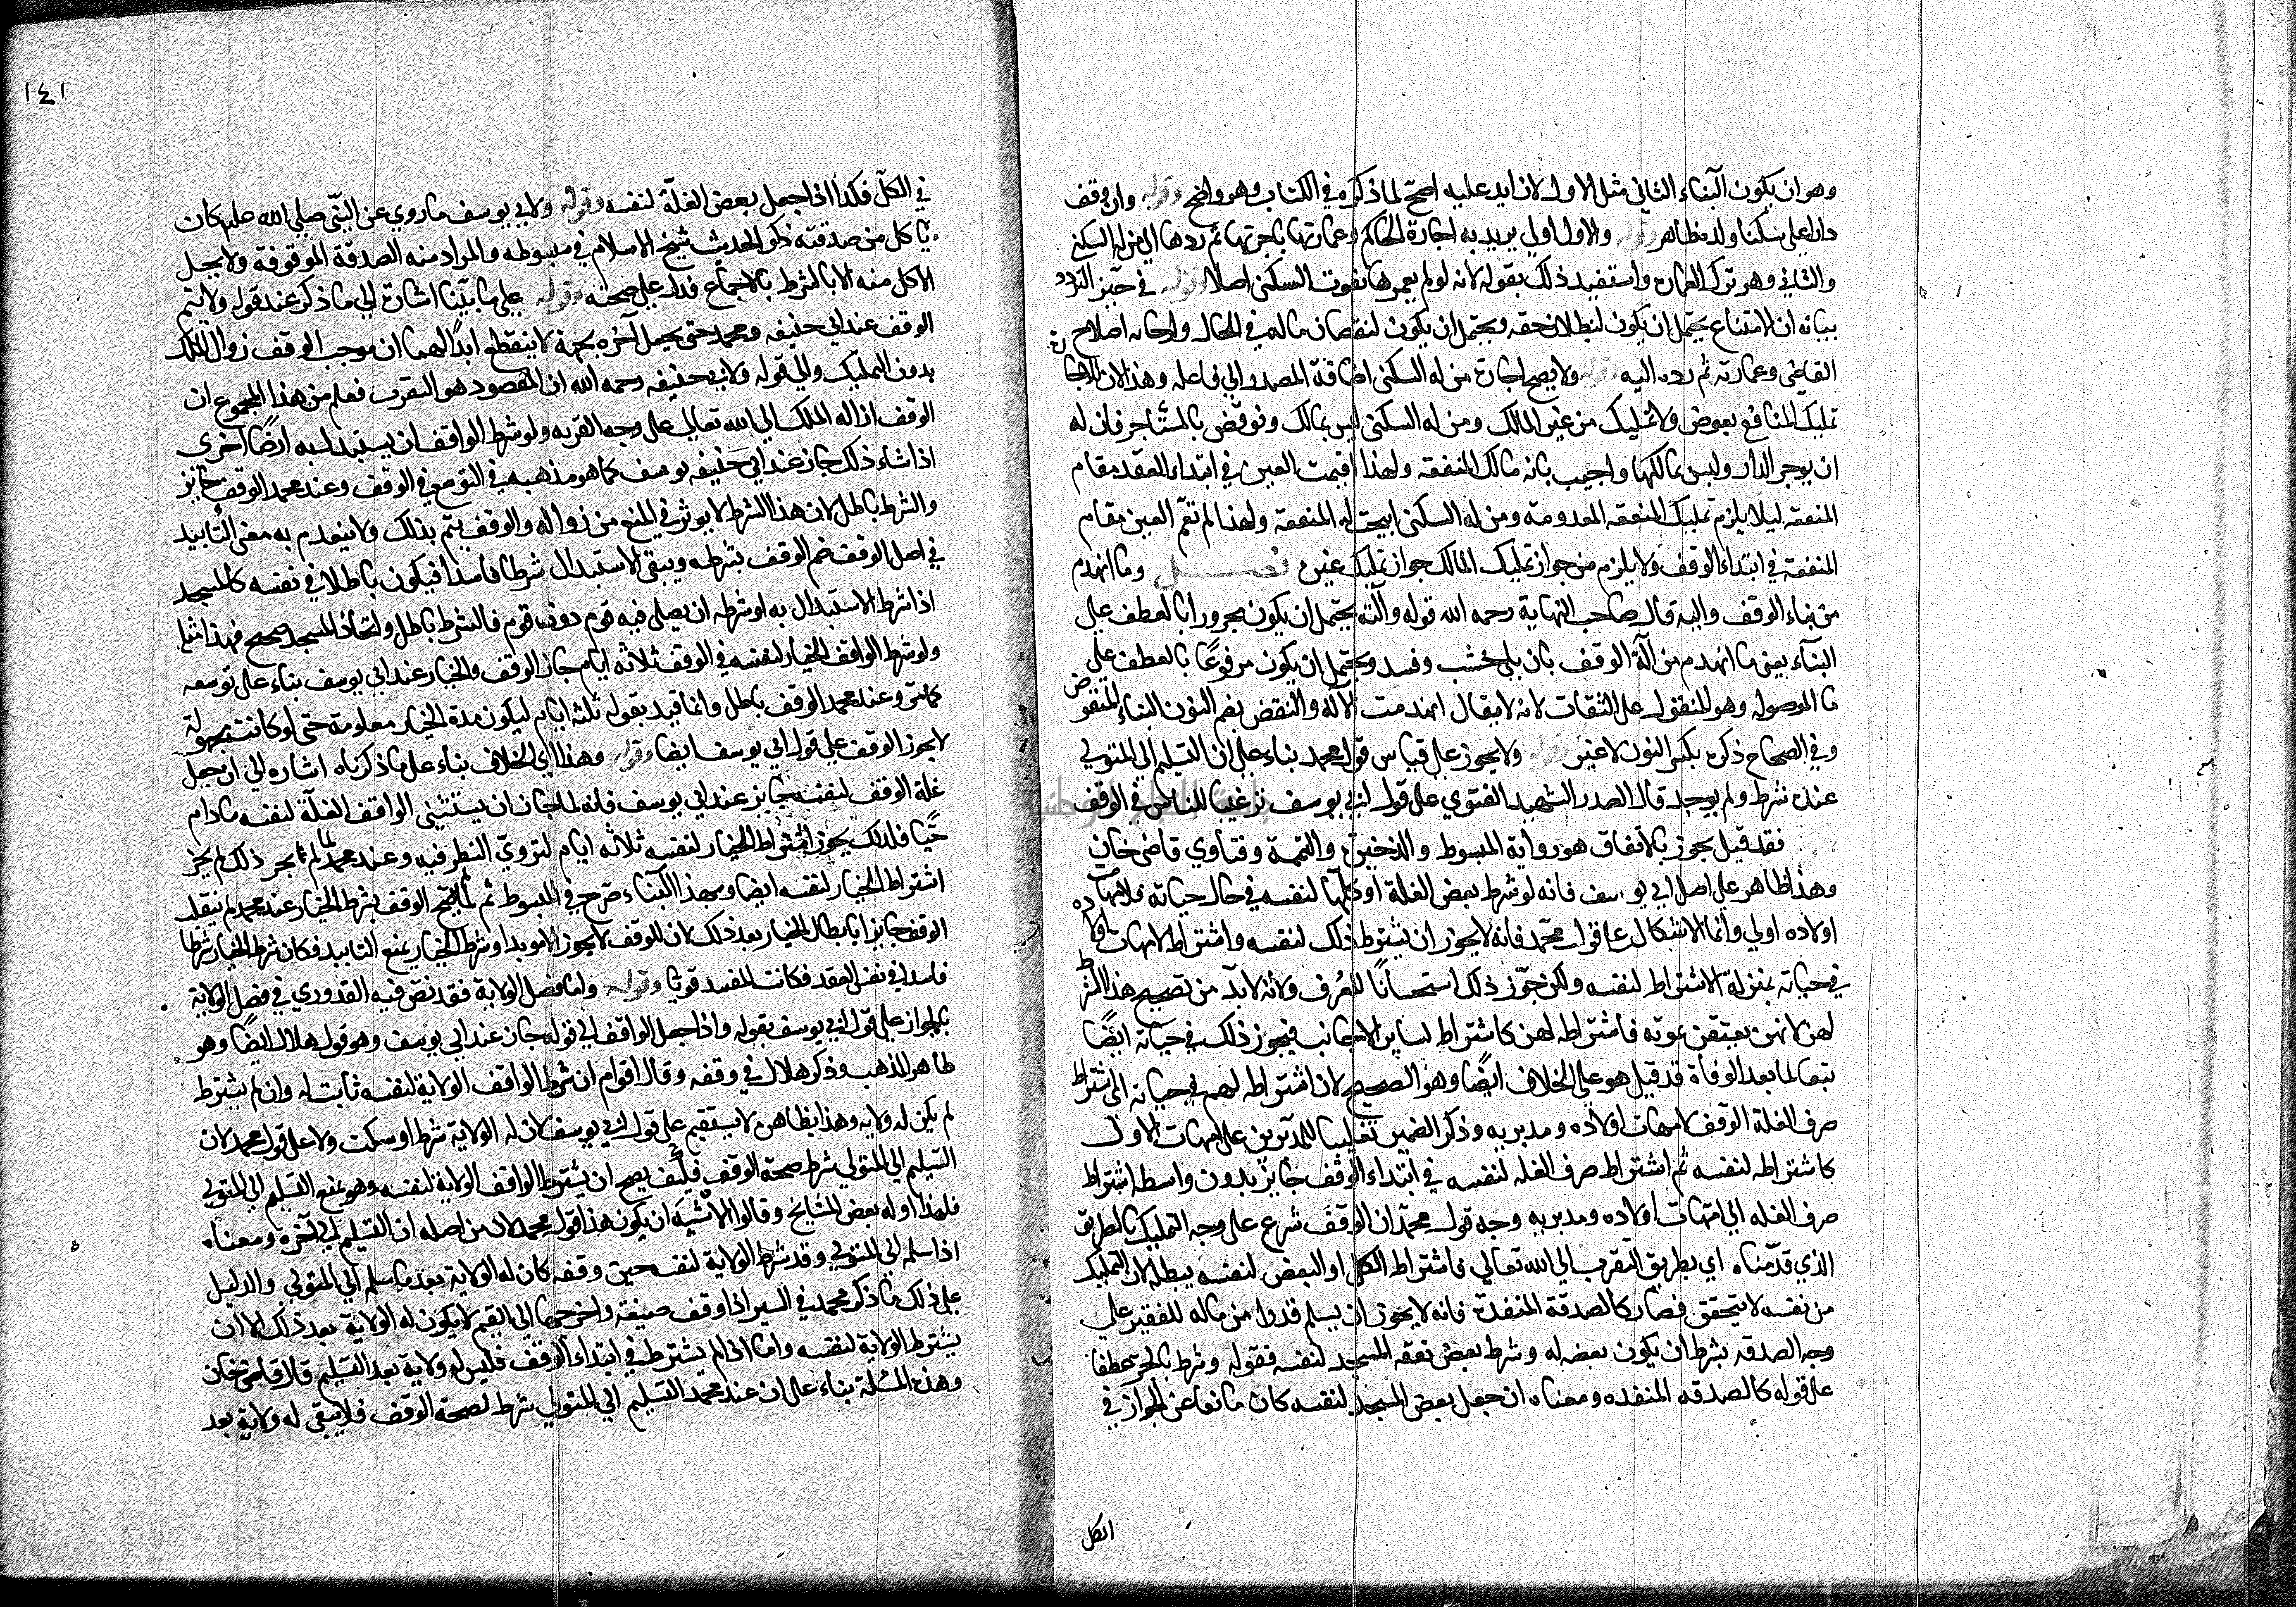 وهو ان يكون البناء الثاني مثل الاول لا ازيد عليه اصح لما ذكره في الكتاب وهو واضح وقوله وان وقف
دارا على سكنا ولده فظاهر وقوله والاول اولى يريد به اجارة الحاكم وعمارتها باجرتها ثم ردها الى من له السكنى
والثاني وهو ترك العمارة واستفيد ذلك بقوله لانه لو لم يعمرها تفوت السكنى اصلا وقوله في حيز التردد
بيانه ان الامتناع يحتمل ان يكون لبطلان حقه ويحتمل ان يكون لنقصان ماله في الحال ولرجائه اصلاح
القاضي وعمارته ثم رده اليه وقوله ولا يصح اجارة من له السكنى اضافة المصدر الى فاعله وهذا لان الاجارة
تمليك المنافع بعوض ولا تمليك من غير المالك ومن له السكنى ليس بمالك ونوقض بالمستأجر فان له
ان يوجر الدار وليس بمالكها واجيب بانه مالك المنفعة ولهذا اقيمت العين في ابتداء العقد مقام
المنفعة ليلا يلزم تمليك المنفعة المعدومة ومن له السكنى ابيحت له المنفعة ولهذا لم تقم العين مقام
المنفعة في ابتداء الوقف ولا يلزم من جواز تمليك المالك جواز تمليك غيره فصل وما انهدم
من بناء الوقف والته قال صاحب النهاية رحمه الله قوله وآلته يحتمل ان يكون مجرورا بالعطف على
البناء يعني ما انهدم من آلة الوقف بان بلى خشب وفسد ويحتمل ان يكون مرفوعا بالعطف على
ما الموصولة وهو المنقول على الثقات لانه لا يقال انهدمت الآلة والنقض بضم النون البناء المنقوض
وفي الصحاح ذكره بكسر النون لا غير وقوله ولا يجوز على قياس قول محمد بناء على ان التسليم الى المتولي
عنده شرط ولم يوجد قال الصدر الشهيد الفتوى على قول ابي يوسف ترغيبا للناس في الوقف
فقد قيل يجوز بالاتفاق هو رواية المبسوط والذخيرة والتتمة وفتاوي قاضي خان
وهذا ظاهر على اصل ابي يوسف فانه لو شرط بعض الغلة او كلها لنفسه في حال حياته فلامهات
اولاده اولى وانما الاشكال على قول محمد فانه لا يجوز ان يشترط ذلك لنفسه واشتراط لامهات اولاده
في حياته بمنزلة الاشتراط لنفسه ولكن جوز ذلك استحسانا للعرف ولانه لا بد من تصحيح هذا الشرط
لهن لانهن يعتقن بموته فاشتراطه لهن كاشتراط لساير الاجانب فيجوز ذلك في حياته ايضا
تبعا لما بعد الوفاة قد قيل هو على الخلاف ايضا وهو الصحيح لان اشتراطه لهم في حياته اي اشتراط
صرف الغلة الوقف لامهات اولاده ومدبريه وذكر الضمير تغليبا للمدبرين على امهات الاولاد
كاشتراطه لنفسه ثم اشتراط صرف الغله لنفسه في ابتداء الوقف جايز بدون واسطه اشتراط
صرف الغله الى امهات اولاده ومدبريه وجه قول محمد ان الوقف شرع على وجه التمليك بالطريق
الذي قدمناه اي بطريق التقرب الى الله تعالى فاشتراط الكل او البعض لنفسه يبطله لان التمليك
من نفسه لا يتحقق فصار كالصدقة المنفذة فانه لا يجوز ان يسلم قدرا من ماله للفقير على
وجه الصدقه بشرط ان يكون بعضه له وشرط بعض بقعه المسجد لنفسه فقوله وشرط بالجر عطفا
على قوله كالصدقه المنفده ومعناه ان جعل بعض المسجد لنفسه كان مانعا عن الجواز في
الكل
١٤١
في الكل فكذا اذا جعل بعض الغلة لنفسه وقوله ولابي يوسف ما روي عن النبي صلى الله عليه كان
ياكل من صدقته ذكر الحديث شيخ الاسلام في مبسوطه والمراد منه الصدقة الموقوفة ولا يحل
الاكل منه الا بالشرط بالاجماع فدل على صحته وقوله على ما بينا اشارة الى ما ذكر عند قوله ولا يتم
الوقف عند ابي حنيفه ومحمد حتى يجعل آخره بجهة لا ينقطع ابدا لهما ان موجب الوقف زوال الملك
بدون التمليك والى قوله ولابي حنيفه رحمه الله ان المقصود هو التقرب فعلم من هذا المجموع ان
الوقف ازاله الملك الى الله تعالى على وجه القربه ولو شرط الواقف ان يستبدل به ارضا اخرى
اذا شاء ذلك جاز عند ابي حنيفه يوسف كما هو مذهبه في التوسع في الوقف وعند محمد الوقف جايز
والشرط باطل لان هذا الشرط لا يوثر في المنع من زواله والوقف يتم بذلك ولا ينعدم به معنى التابيد
في اصل الوقف فتم الوقف بشرطه ويبقى الاستبدال شرطا فاسدا فيكون باطلا في نفسه كالمسجد
اذا شرط الاستبدال به او شرط ان يصلي فيه قوم دون قوم فالشرط باطل واتخاذ المسجد صحيح فهذا مثله
ولو شرط الواقف الخيار لنفسه في الوقف ثلاثه ايام جاز الوقف والخيار عند ابي يوسف بناء على توسعه
كما مر وعند محمد الوقف باطل وانما قيد بقوله ثلثه ايام ليكون مدة الخيار معلومة حتى لو كانت مجهولة
لا يجوز الوقف على قول ابي يوسف ايضا وقوله وهذا اي الخلاف بناء على ما ذكرناه اشاره الى ان جعل
غلة الوقف لنفسه جايز عند ابي يوسف فانه لما جاز ان يستثنى الواقف الغلة لنفسه مادام
حيا فلذلك يجوز اشتراط الخيار لنفسه ثلاثه ايام لتروي النظر فيه وعند محمد لما لم يجز ذلك لم يجز
اشتراط الخيار لنفسه ايضا وبهذا البناء صرح في المبسوط ثم لما لم يصح الوقف بشرط الخيار عند محمد لم ينقلب
الوقف جايزا بابطال الخيار بعد ذلك لان الوقف لا يجوز الا موبدا وشرط الخيار يمنع التابيد فكان شرط الخيار شرطا
فاسدا في نفس العقد فكانت المفسد قويا وقوله واما فصل الولاية فقد نص فيه القدوري في فصل الولاية
بالجواز على قول ابي يوسف بقوله واذا جعل الواقف الى قوله جاز عند ابي يوسف وهو قول هلال ايضا وهو
ظاهر المذهب وذكر هلال في وقفه وقال اقوام ان شرط الواقف الولاية لنفسه ثابت له وان لم يشترط
لم يكن له ولايه وهذا بظاهره لا يستقيم على قول ابي يوسف لان له الولاية شرط او سكت ولا على قول محمد لان
التسليم الى المتولي شرط صحة الوقف فكيف يصح ان يشترط الواقف الولاية لنفسه وهو يمنع التسليم الى المتولي
فلهذا اوله بعض المشايخ وقالوا الاشبه ان يكون هذا قول محمد لان من اصله ان التسليم الى آخره ومعناه
اذا سلم الى المتولي وقد شرط الولاية لنفسه حين وقفه كان له الولاية بعد ما سلم الى المتولي والدليل
على ذلك ما ذكر محمد في السير اذا وقف ضيعة واخرجها الى القيم لا يكون له الولاية بعد ذلك الا ان
يشترط الولاية لنفسه واما اذا لم يشترط في ابتداء الوقف فليس له ولاية بعد التسليم قال قاضي خان
وهذه المسئلة بناء على ان عند محمد التسليم الى المتولي شرط لصحة الوقف فلا يبقى له ولاية بعد